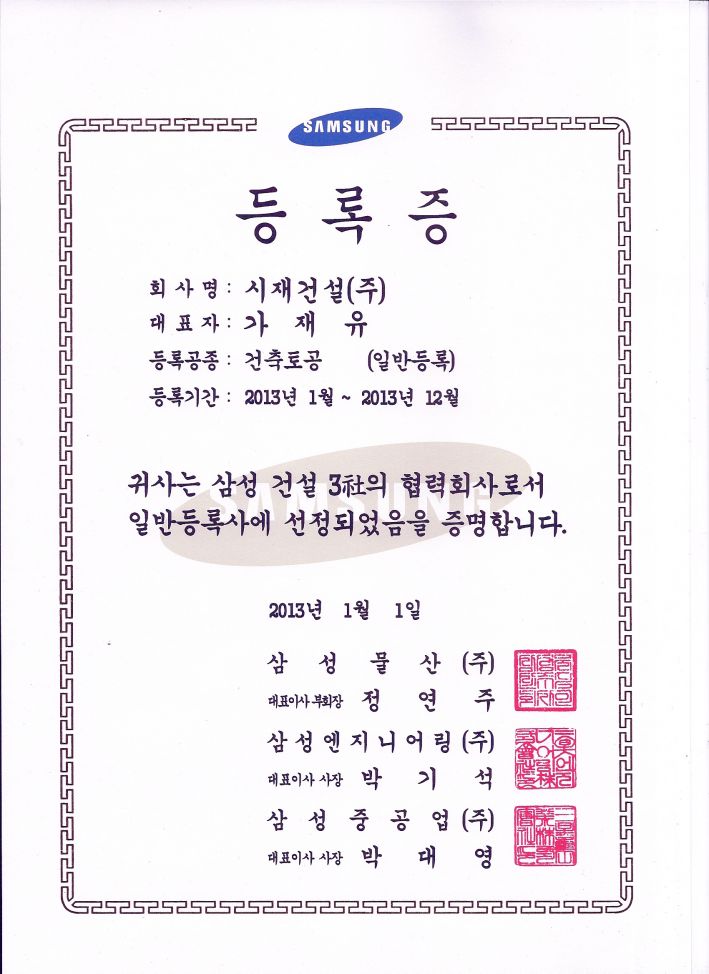 SAMSUNG
등 록 증
회 사 명 : 시재건설(주)
대 표 자 : 가 재 유
등록공종 : 건축토공 (일반등록)
등록기간 : 2013년 1월 ~ 2013년 12월
SAMSUNG
귀사는 삼성 건설 3社의 협력회사로서
일반등록사에 선정되었음을 증명합니다.
2013년 1월 1일
삼 성 물 산 (주)
대표이사 부회장 정 연 주
삼성엔지니어링 (주)
대표이사 사장 박 기 석
삼 성 중 공 업 (주)
대표이사 사장 박 대 영